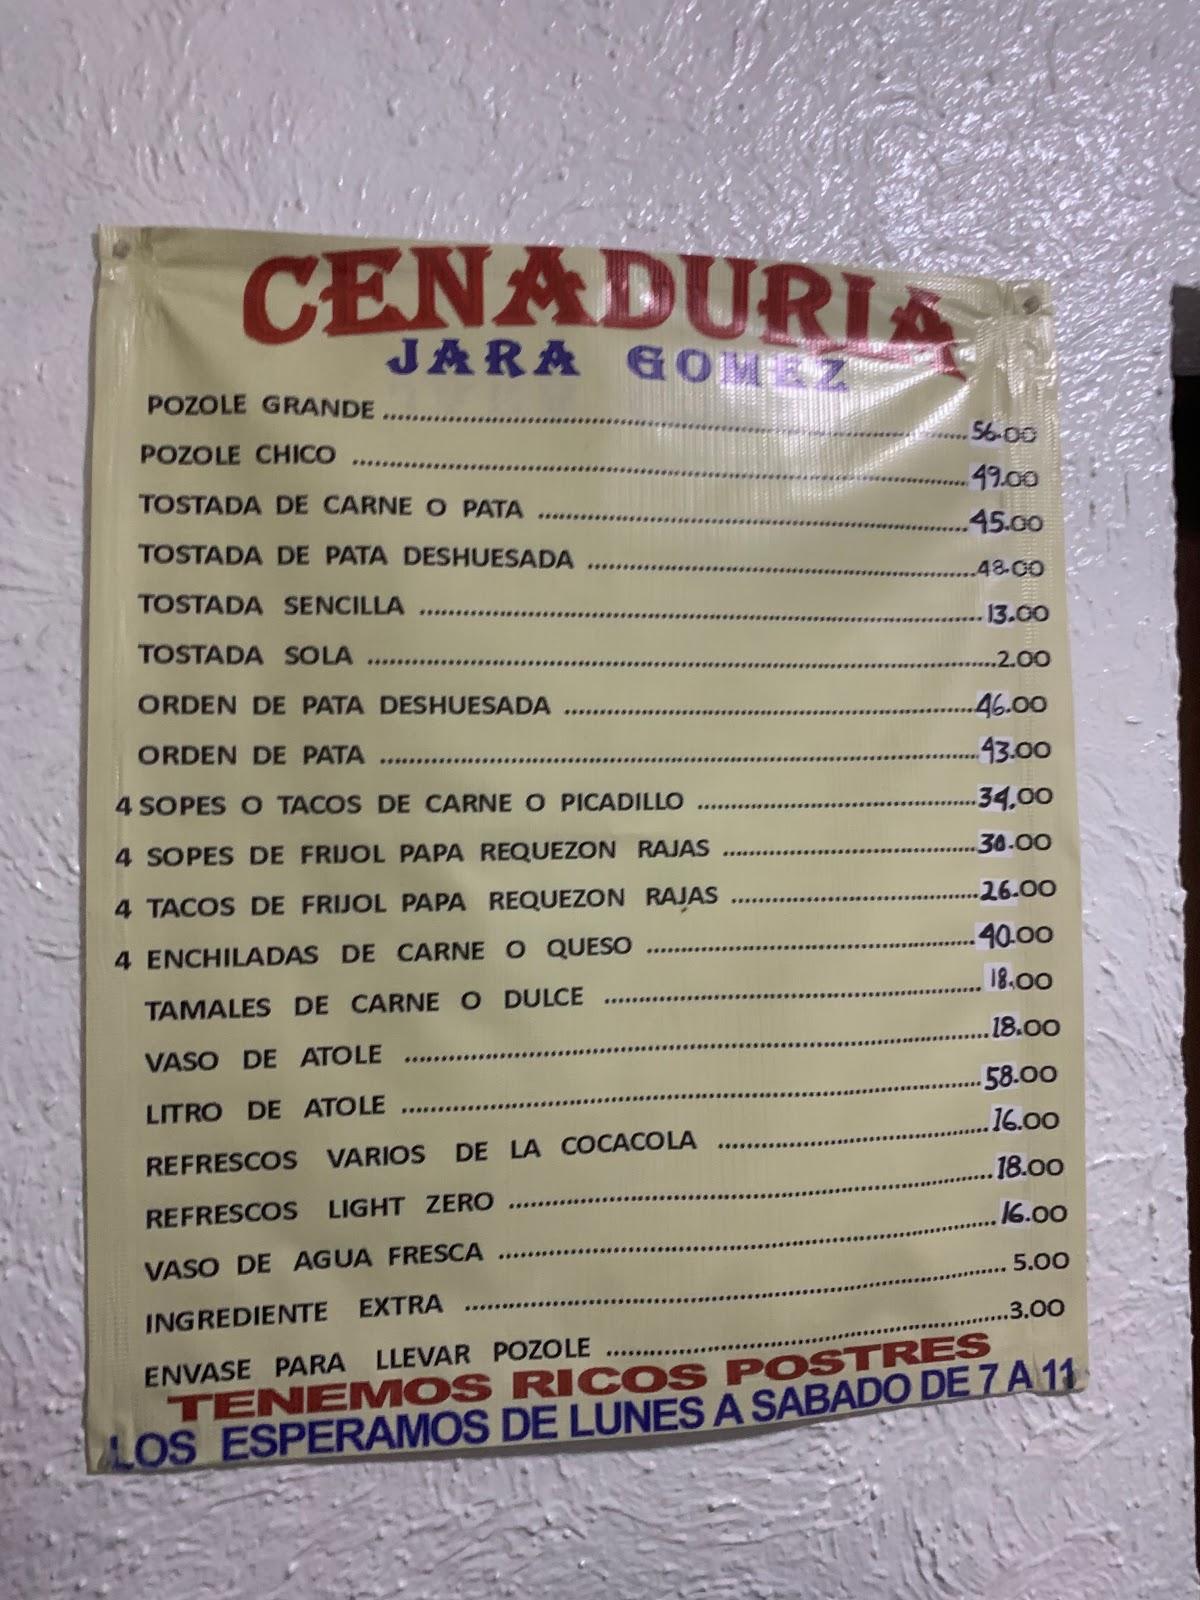 CENADURIA
JARA GOMEZ
POZOLE GRANDE ........ 56.00
POZOLE CHICO ........ 49.00
TOSTADA DE CARNE O PATA ........ 45.00
TOSTADA DE PATA DESHUESADA ........ 48.00
TOSTADA SENCILLA ........ 13.00
TOSTADA SOLA ........ 2.00
ORDEN DE PATA DESHUESADA ........ 46.00
ORDEN DE PATA ........ 43.00
4 SOPES O TACOS DE CARNE O PICADILLO ........ 34.00
4 SOPES DE FRIJOL PAPA REQUEZON RAJAS ........ 30.00
4 TACOS DE FRIJOL PAPA REQUEZON RAJAS ........ 26.00
4 ENCHILADAS DE CARNE O QUESO ........ 40.00
TAMALES DE CARNE O DULCE ........ 18.00
VASO DE ATOLE ........ 18.00
LITRO DE ATOLE ........ 58.00
REFRESCOS VARIOS DE LA COCACOLA ........ 16.00
REFRESCOS LIGHT ZERO ........ 18.00
VASO DE AGUA FRESCA ........ 16.00
INGREDIENTE EXTRA ........ 5.00
ENVASE PARA LLEVAR POZOLE ........ 3.00
TENEMOS RICOS POSTRES
LOS ESPERAMOS DE LUNES A SABADO DE 7 A 11